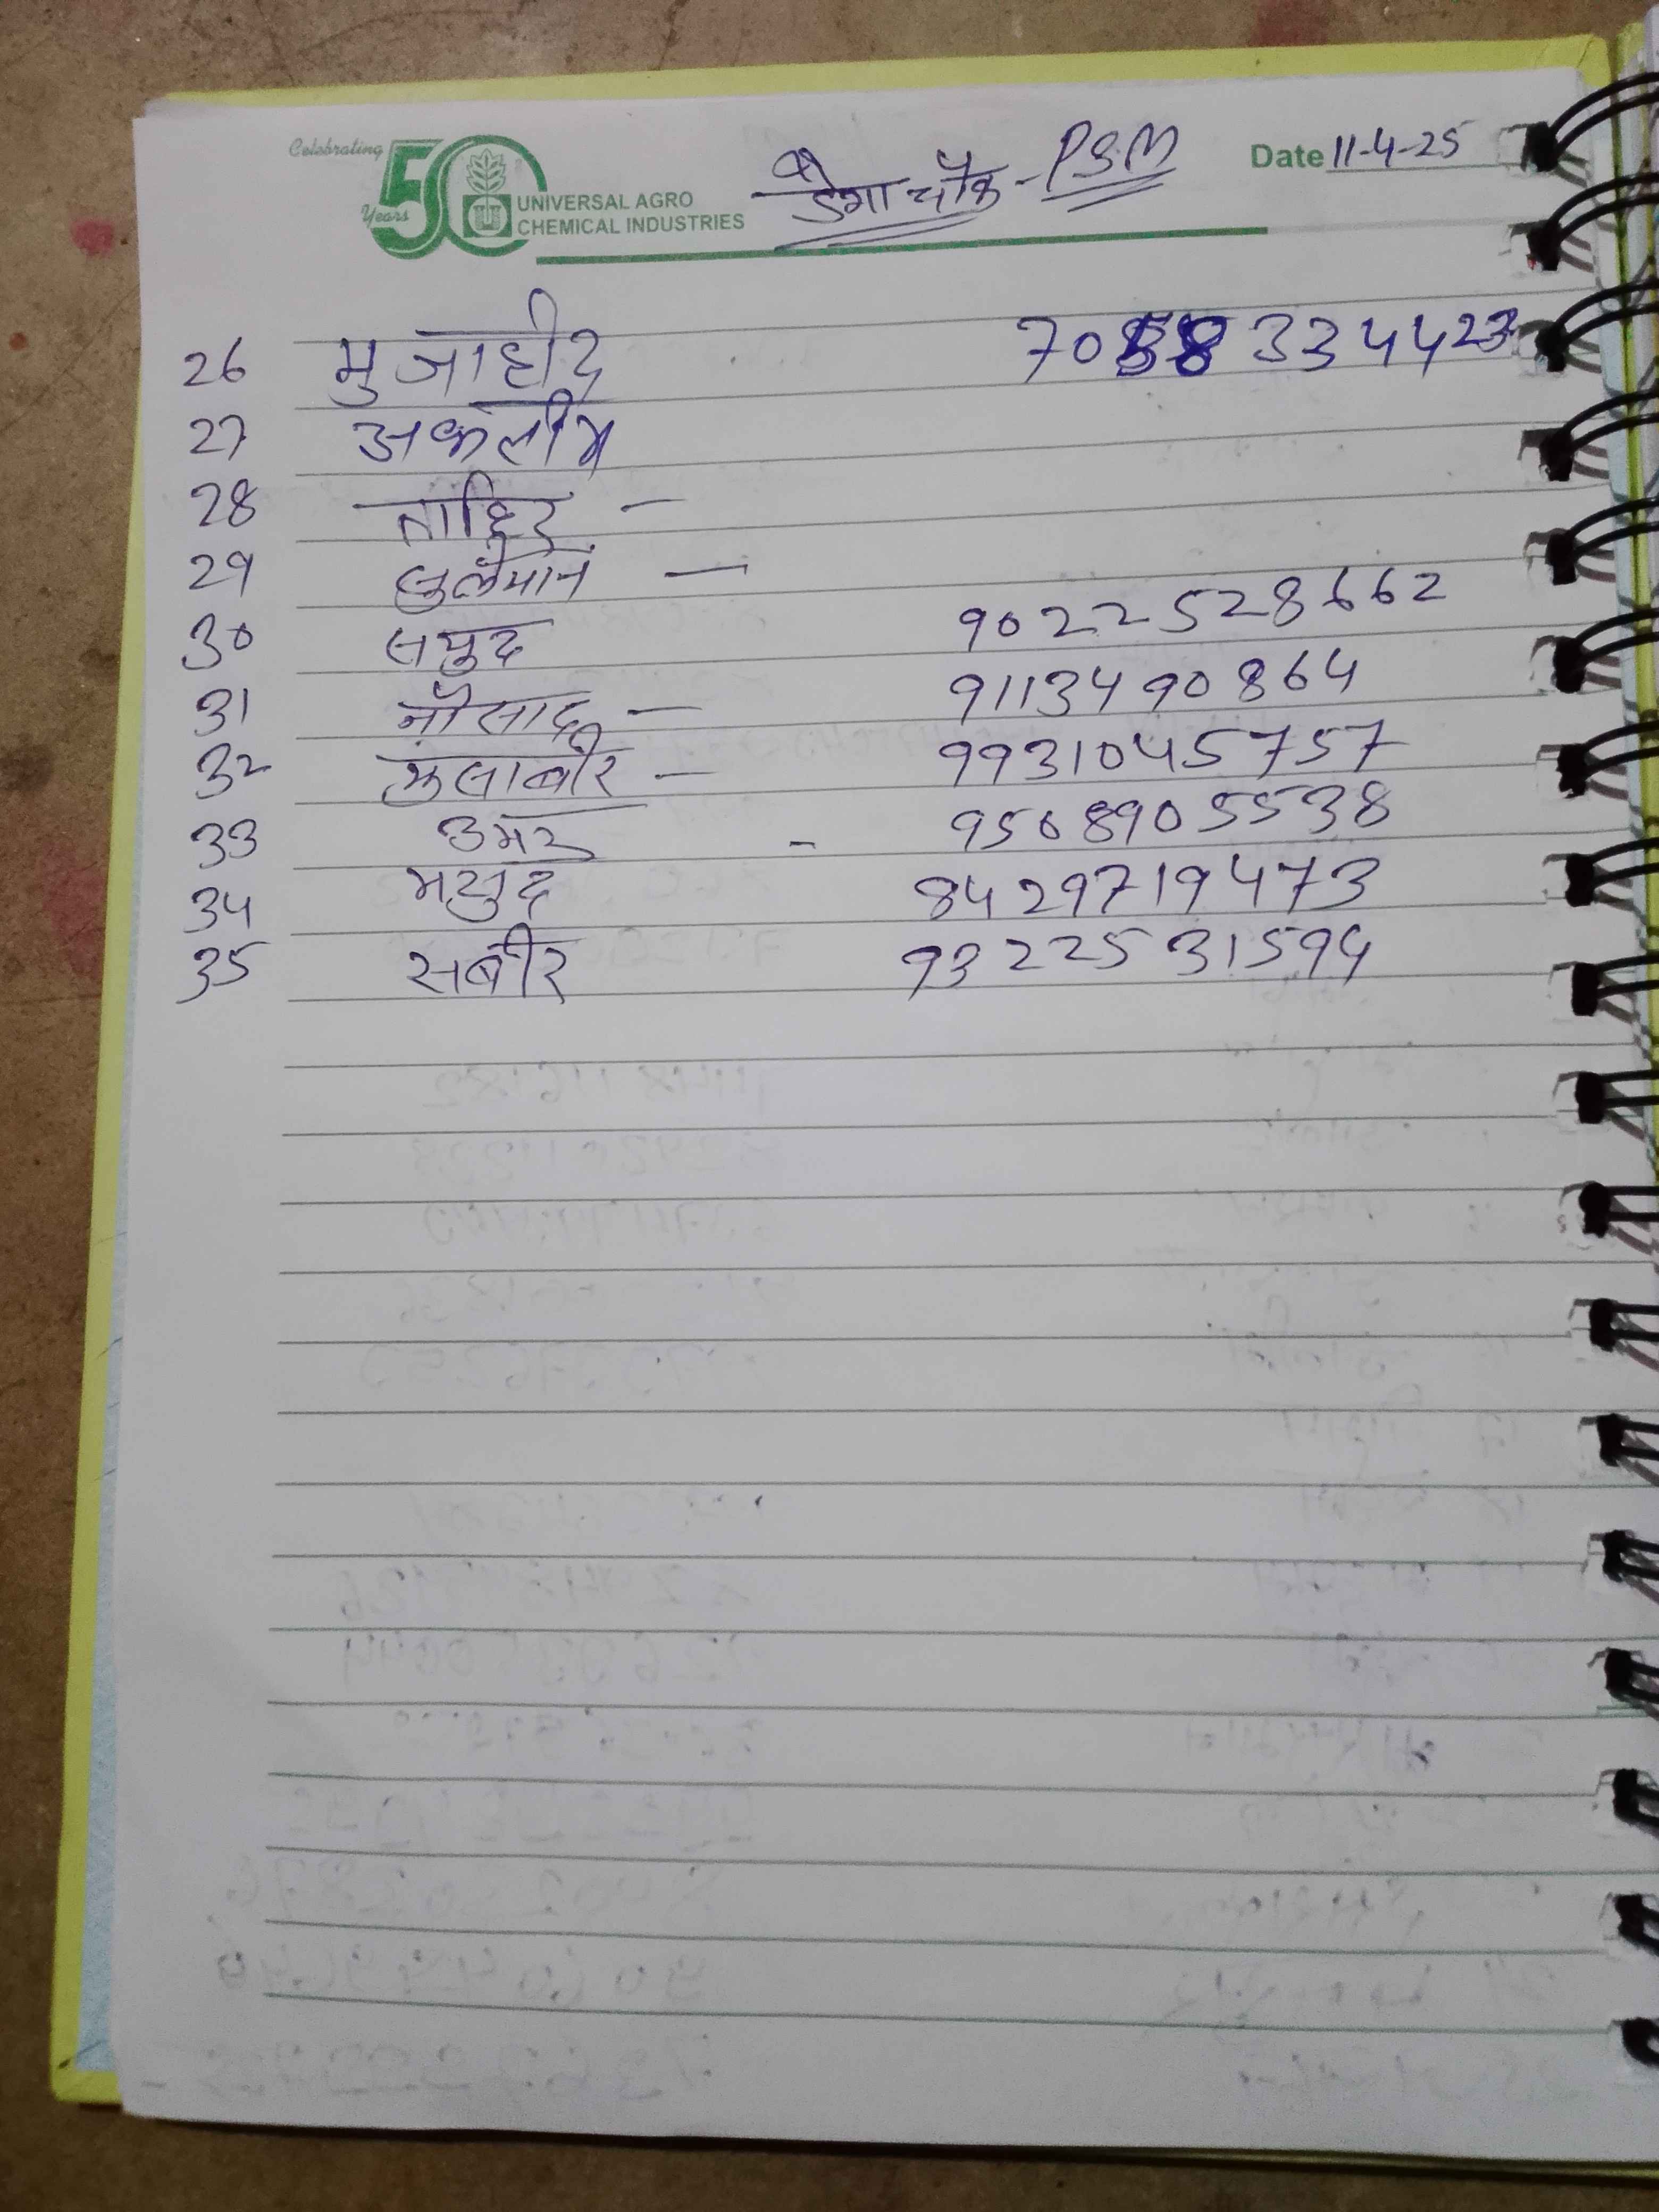 Celebrating
50
Years
UNIVERSAL AGRO
CHEMICAL INDUSTRIES
डेंगा चौक - PSM
Date 11-4-25
26 मुजाहीद 7058334423
27 अकलीम
28 ताहिर -
29 सुलेमान -
30 समुद 9022528662
31 नौसाद - 9113490864
32 9931045757
33 उमर - 9508905538
34 मसुद 8429719473
35 सबीर 9322531594